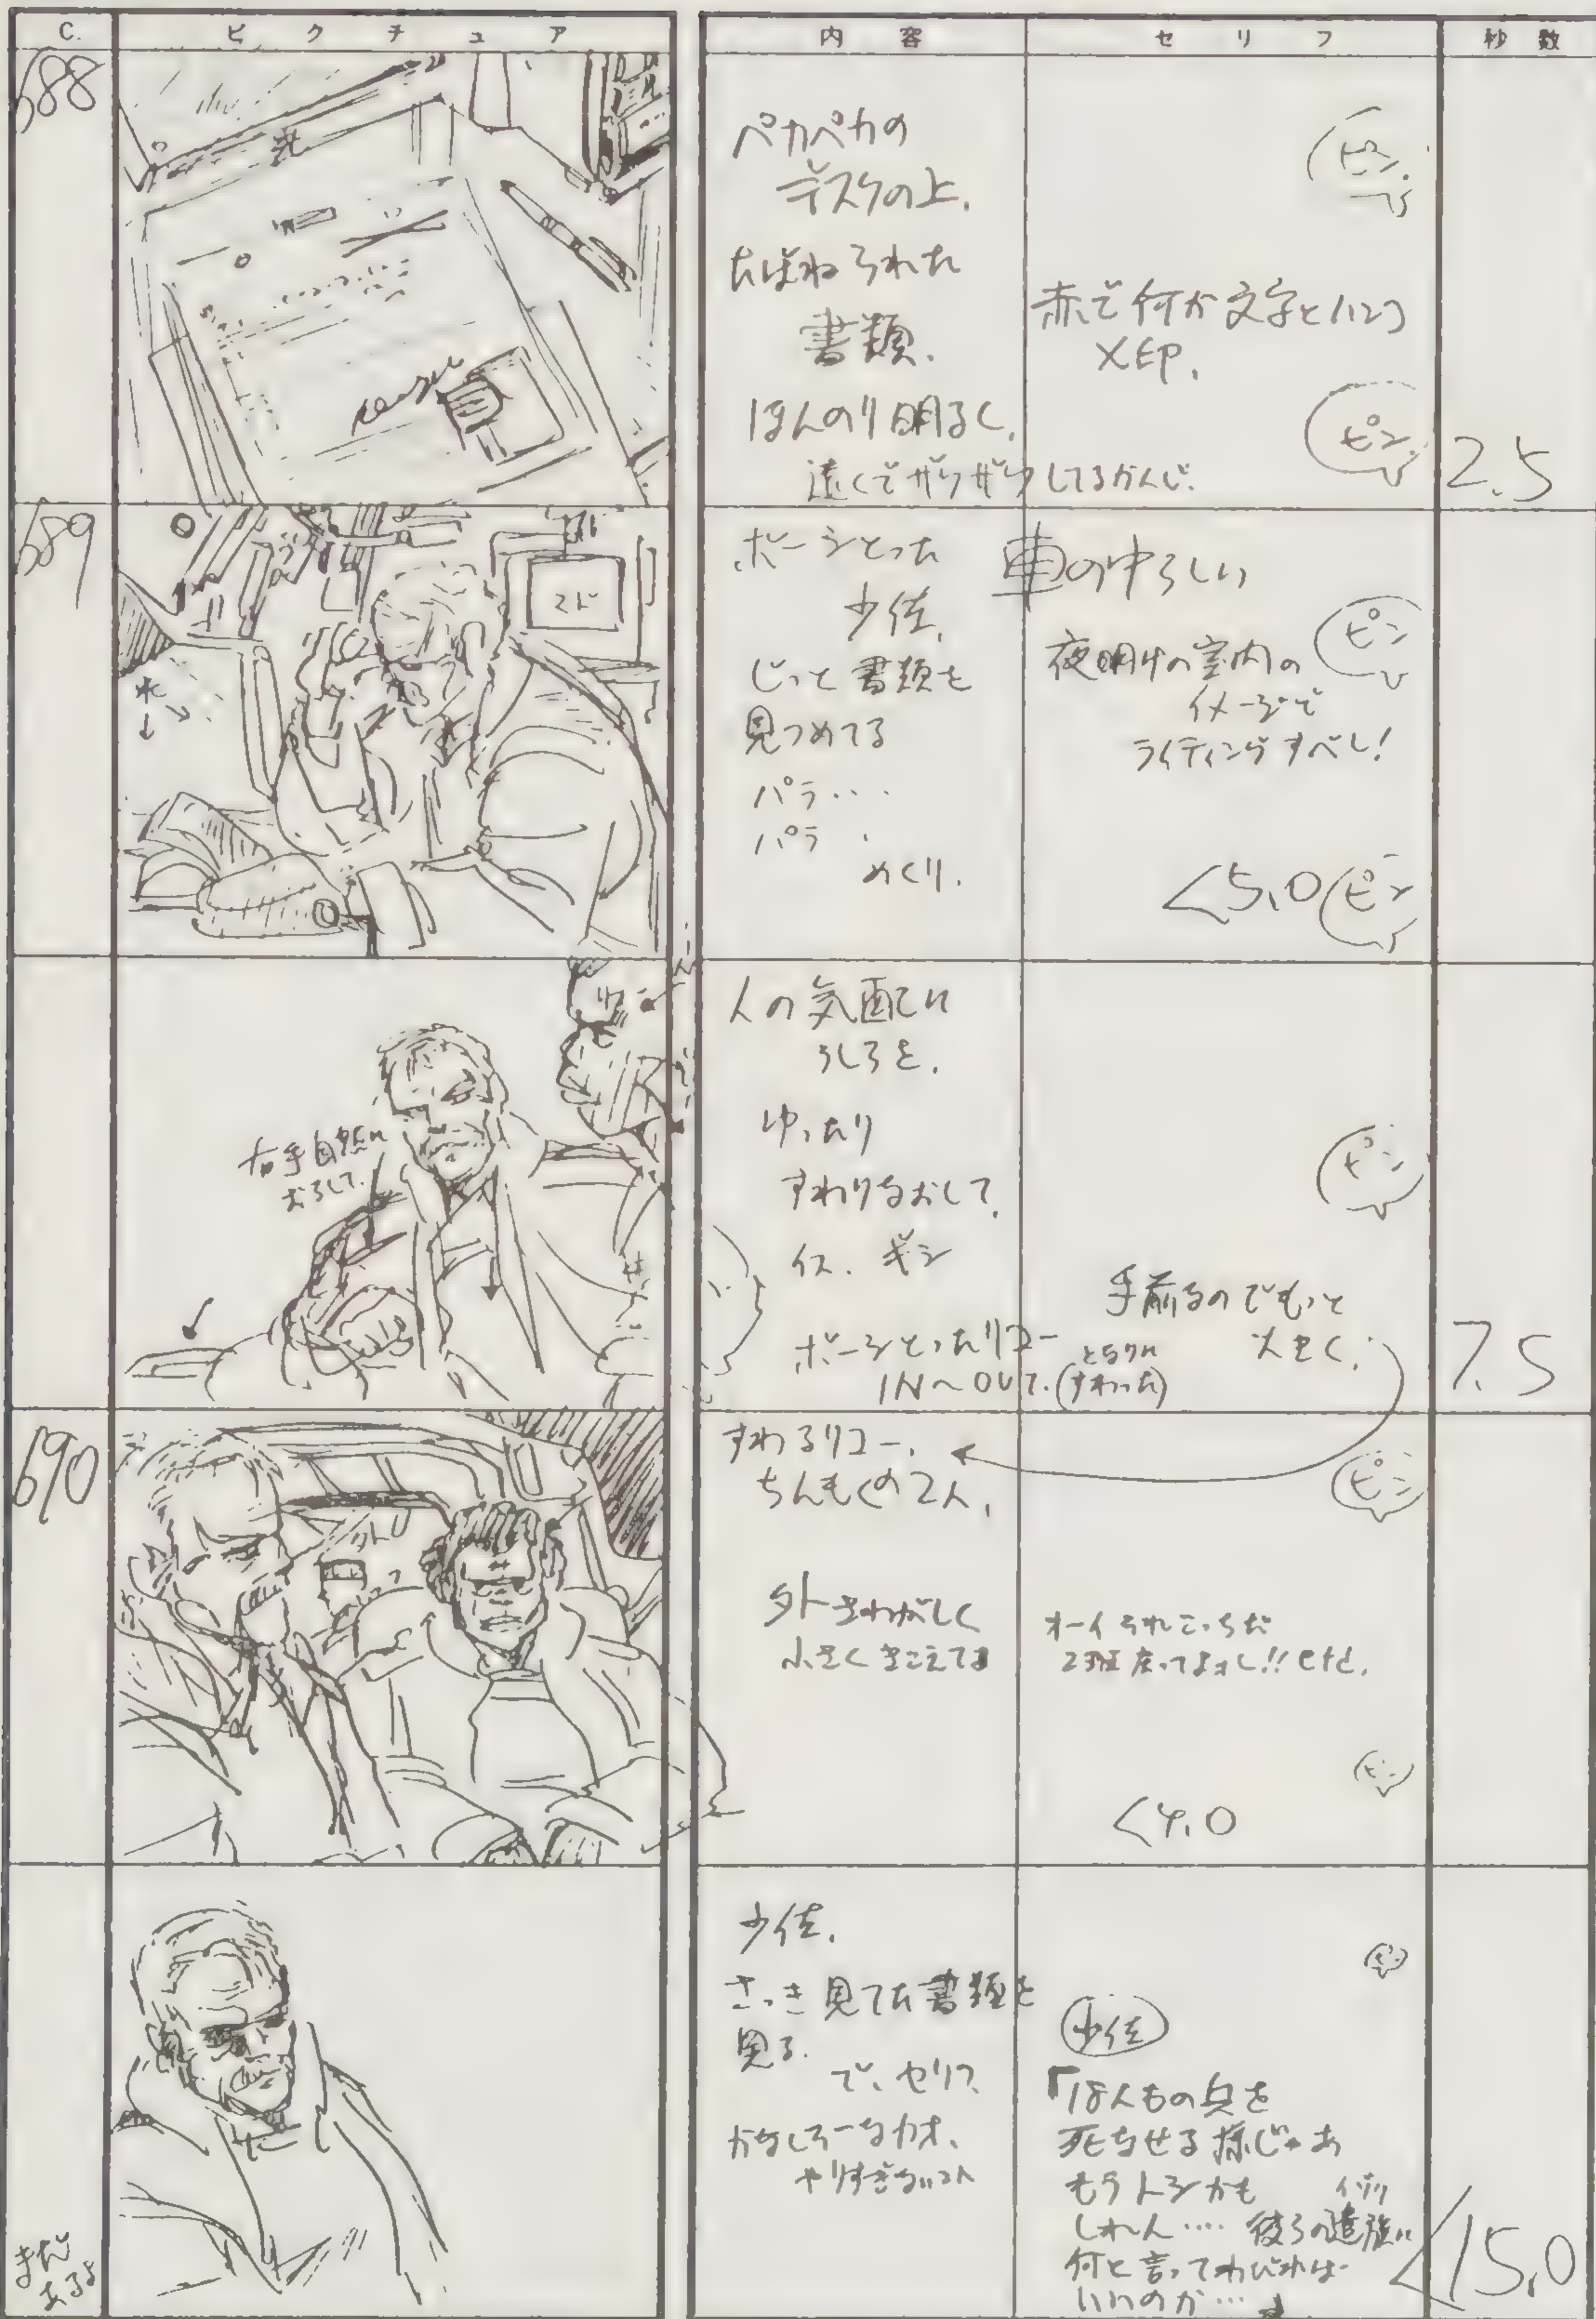 C. ピクチュア 内容 セリフ 秒数
588
ペカペカの
デスクの上.
たばねられた
書類.
ほんのり明るく.
遠くでザワザワしてるかんじ.
ピン
赤で何か文字とハンコ
ピン
2.5
589
マド
ボーシとった
少佐.
じっと書類を
見つめてる
パラ...
パラ.
めくり.
車の中らしい
夜明けの室内の
イメージで
ライティングすべし!
ピン
<5.0
ピン
右手自然に
おろして.
人の気配に
うしろを.
ゆったり
すわりなおして.
イス. ギシ
ボーシとったリコー
IN~OUT.(となりに
すわった)
ピン
手前なのでもっと
大きく.
7.5
590
すわるリコー.
ちんもくの2人.
外さわがしく
小さくきこえてる
ピン
オーイそれこっちだ
2班戻ってよォし!! etc.
ピン
<4.0
少佐.
さっき見てた書類を
見る.
で、セリフ.
かなしそーなカオ.
やりすぎないコト
ピン
少佐
「18人もの兵を
死なせる様じゃあ
もうトシかも
しれん.... 彼らの遺族に
イゾク
何と言ってわびれば
いいのか...」
<15.0
まだ
あるよ